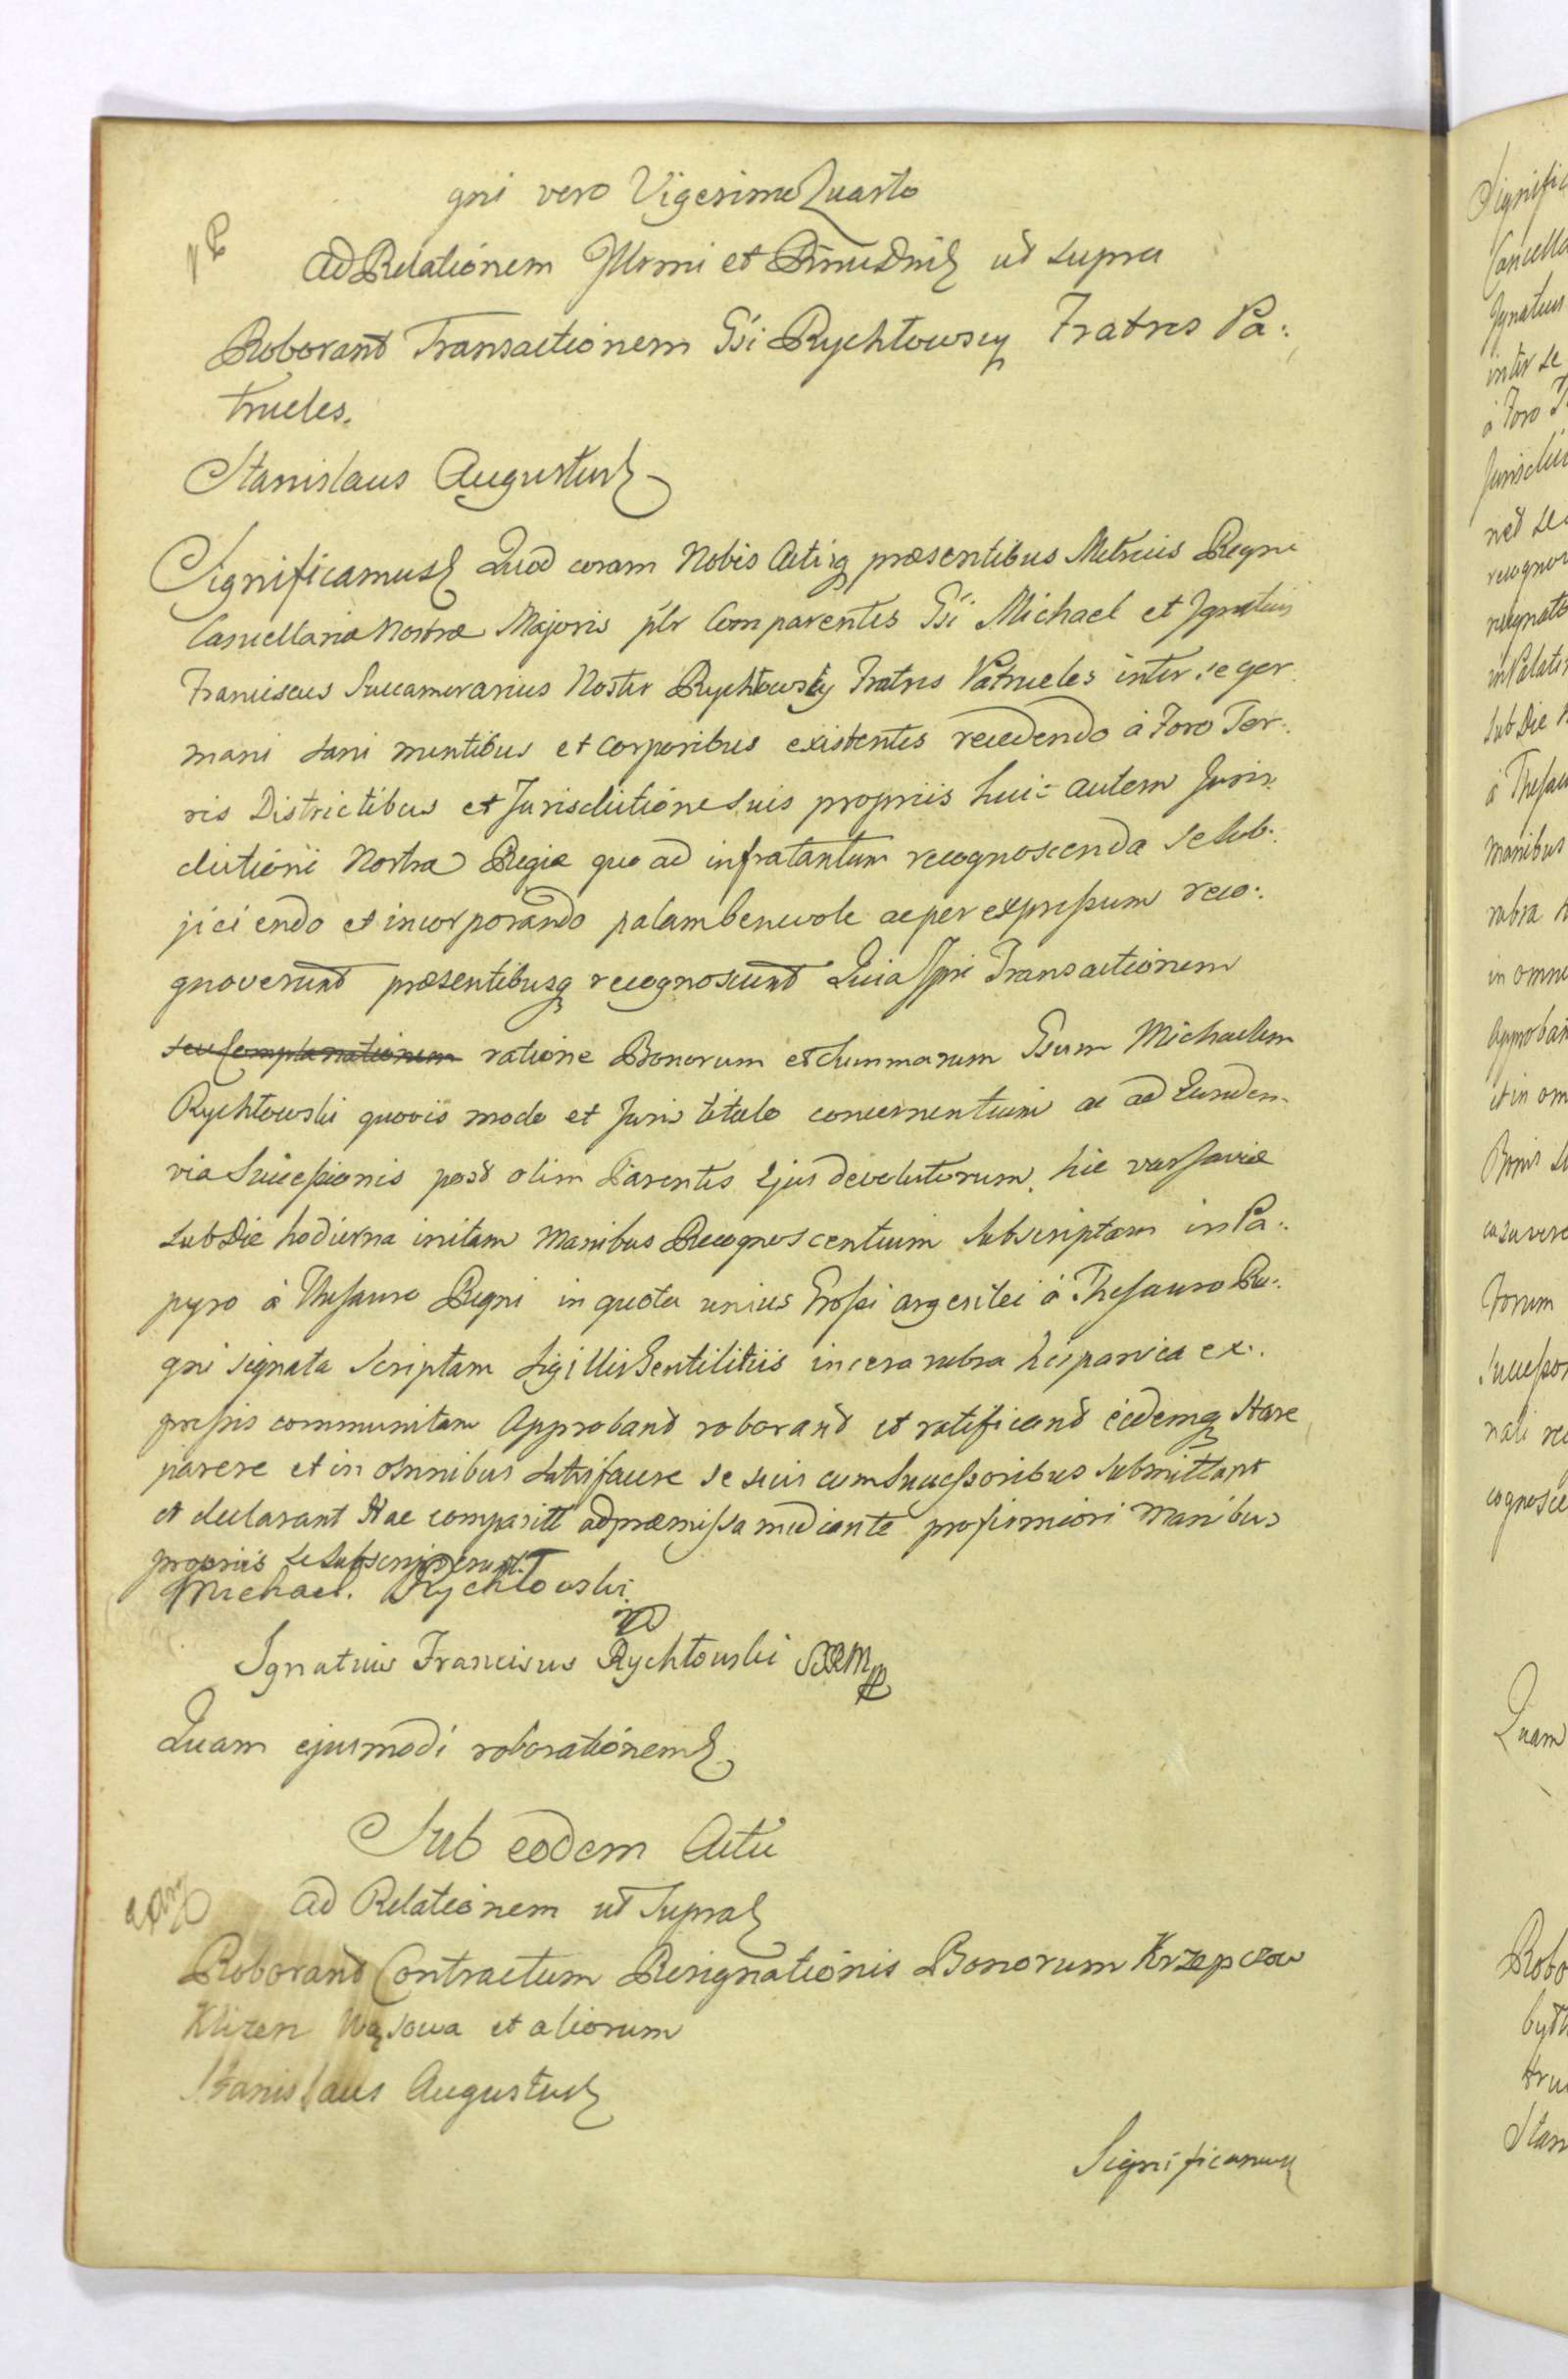 gni vero Vigesimo Quarto
Ad Relationem Jllrmi et ut supra
Roborant Transactionem Gsi Rychłowscy Fratres Pa:
trueles.
Stanislaus Augustus
Significamus Quod coram Nobis Actisq præsentibus Metricis Regni
Cancellariæ Nostræ Majoris plr Comparentes Gsi Michael et Jgnatius
Franciscus Succamerarius Noster Rychłowscy Fratres Patrueles inter se ger
mani sani mentibus et Corporibus existentes recedendo à Foro Ter:
ris Districtibus et Jurisdictione suis propriis huic autem Juris
dictioni Nostræ Regiæ quo ad infratantum recognoscenda se sub:
jiciendo et incorporando palam benevole ac per expressum reco:
gnoverunt præsentibusq recognoscunt Quia Jpsi Transactionem
seu Complanationem ratione Bonorum et Summarum Gsum Michaelem
Rychłowski quovis modo et Juris titulo concernentium ac ad Eundem
via Successionis post olim Parentes Ejus devolutorum, hic Varsaviæ
sub Die hodierna initam Manibus Recognoscentium Subscriptam in Pa:
pyro à Thesauro Regni in quota unius Grossi argentei à Thesauro Re:
gni signata Scriptam Sigillis Gentilitiis in cera rubra hispanica ex:
pressis communitam Approbant roborant et ratificant eidemq Stare
parere et in omnibus satisfacere se suis cum Successoribus submittant
et declarant Hac comparitt ad præmissa mediante pro firmiori Manibus
propriis se subscripserunt.
Michael. Rychłowski
Ignatius Franciscus Rychłowski SJKM
Quam ejusmodi roborationem
Sub eodem Actu
ad Relationem ut Supra
Roborant Contractum Resignationis Bonorum Krzepczow
Klizen Wąsowa et aliorum
Stanislaus Augustus
Significamus
Signifi
Cancella
Jgnatius
inter se
à Foro T
Jurisdic
net se
recognos
in Palati
sub Die
à Thesau
Manibus
rubra
in omn
Approban
et in om
Bonis
torum
Successo
cognosce
Quam
Robo
tru
Stan